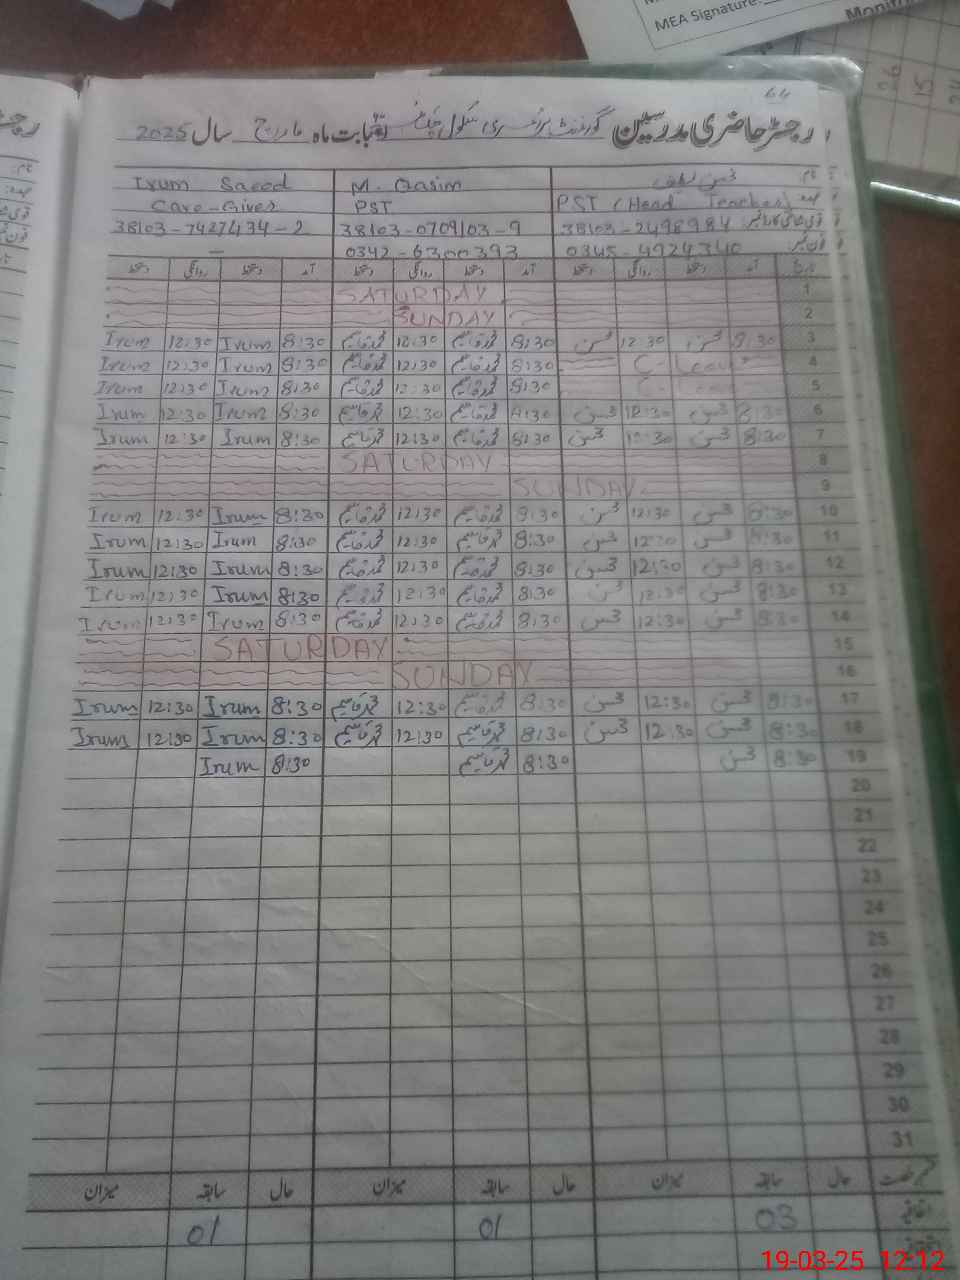 MEA Signature:
64
رجسٹر حاضری مدرسین گورنمنٹ پرائمری سکول بابت ماہ مارچ سال 2025
Irum Saeed M. Qasim محسن لطیف نام
Care-Giver PST PST (Head Teacher) عہدہ
38103-7427434-2 38103-0709103-9 38103-2498984
— 0342-6300393 0345-4924340 فون نمبر
دستخط روانگی دستخط آمد دستخط روانگی دستخط آمد دستخط روانگی دستخط آمد تاریخ
SATURDAY 1
SUNDAY 2
Irum 12:30 Irum 8:30 محمد قاسم 12:30 محمد قاسم 8:30 محسن 12:30 محسن 8:30 3
Irum 12:30 Irum 8:30 محمد قاسم 12:30 محمد قاسم 8:30 C-Leave 4
Irum 12:30 Irum 8:30 محمد قاسم 12:30 محمد قاسم 8:30 C-Leave 5
Irum 12:30 Irum 8:30 محمد قاسم 12:30 محمد قاسم 8:30 محسن 12:30 محسن 8:30 6
Irum 12:30 Irum 8:30 محمد قاسم 12:30 محمد قاسم 8:30 محسن 12:30 محسن 8:30 7
SATURDAY 8
SUNDAY 9
Irum 12:30 Irum 8:30 محمد قاسم 12:30 محمد قاسم 8:30 محسن 12:30 محسن 8:30 10
Irum 12:30 Irum 8:30 محمد قاسم 12:30 محمد قاسم 8:30 محسن 12:30 محسن 8:30 11
Irum 12:30 Irum 8:30 محمد قاسم 12:30 محمد قاسم 8:30 محسن 12:30 محسن 8:30 12
Irum 12:30 Irum 8:30 محمد قاسم 12:30 محمد قاسم 8:30 محسن 12:30 محسن 8:30 13
Irum 12:30 Irum 8:30 محمد قاسم 12:30 محمد قاسم 8:30 محسن 12:30 محسن 8:30 14
SATURDAY 15
SUNDAY 16
Irum 12:30 Irum 8:30 محمد قاسم 12:30 محمد قاسم 8:30 محسن 12:30 محسن 8:30 17
Irum 12:30 Irum 8:30 محمد قاسم 12:30 محمد قاسم 8:30 محسن 12:30 محسن 8:30 18
Irum 8:30 محمد قاسم 8:30 محسن 8:30 19
20
21
22
23
24
25
26
27
28
29
30
31
میزان سابقہ حال میزان سابقہ حال میزان سابقہ حال قسم رخصت
01 01 03 اتفاقیہ
19-03-25 12:12